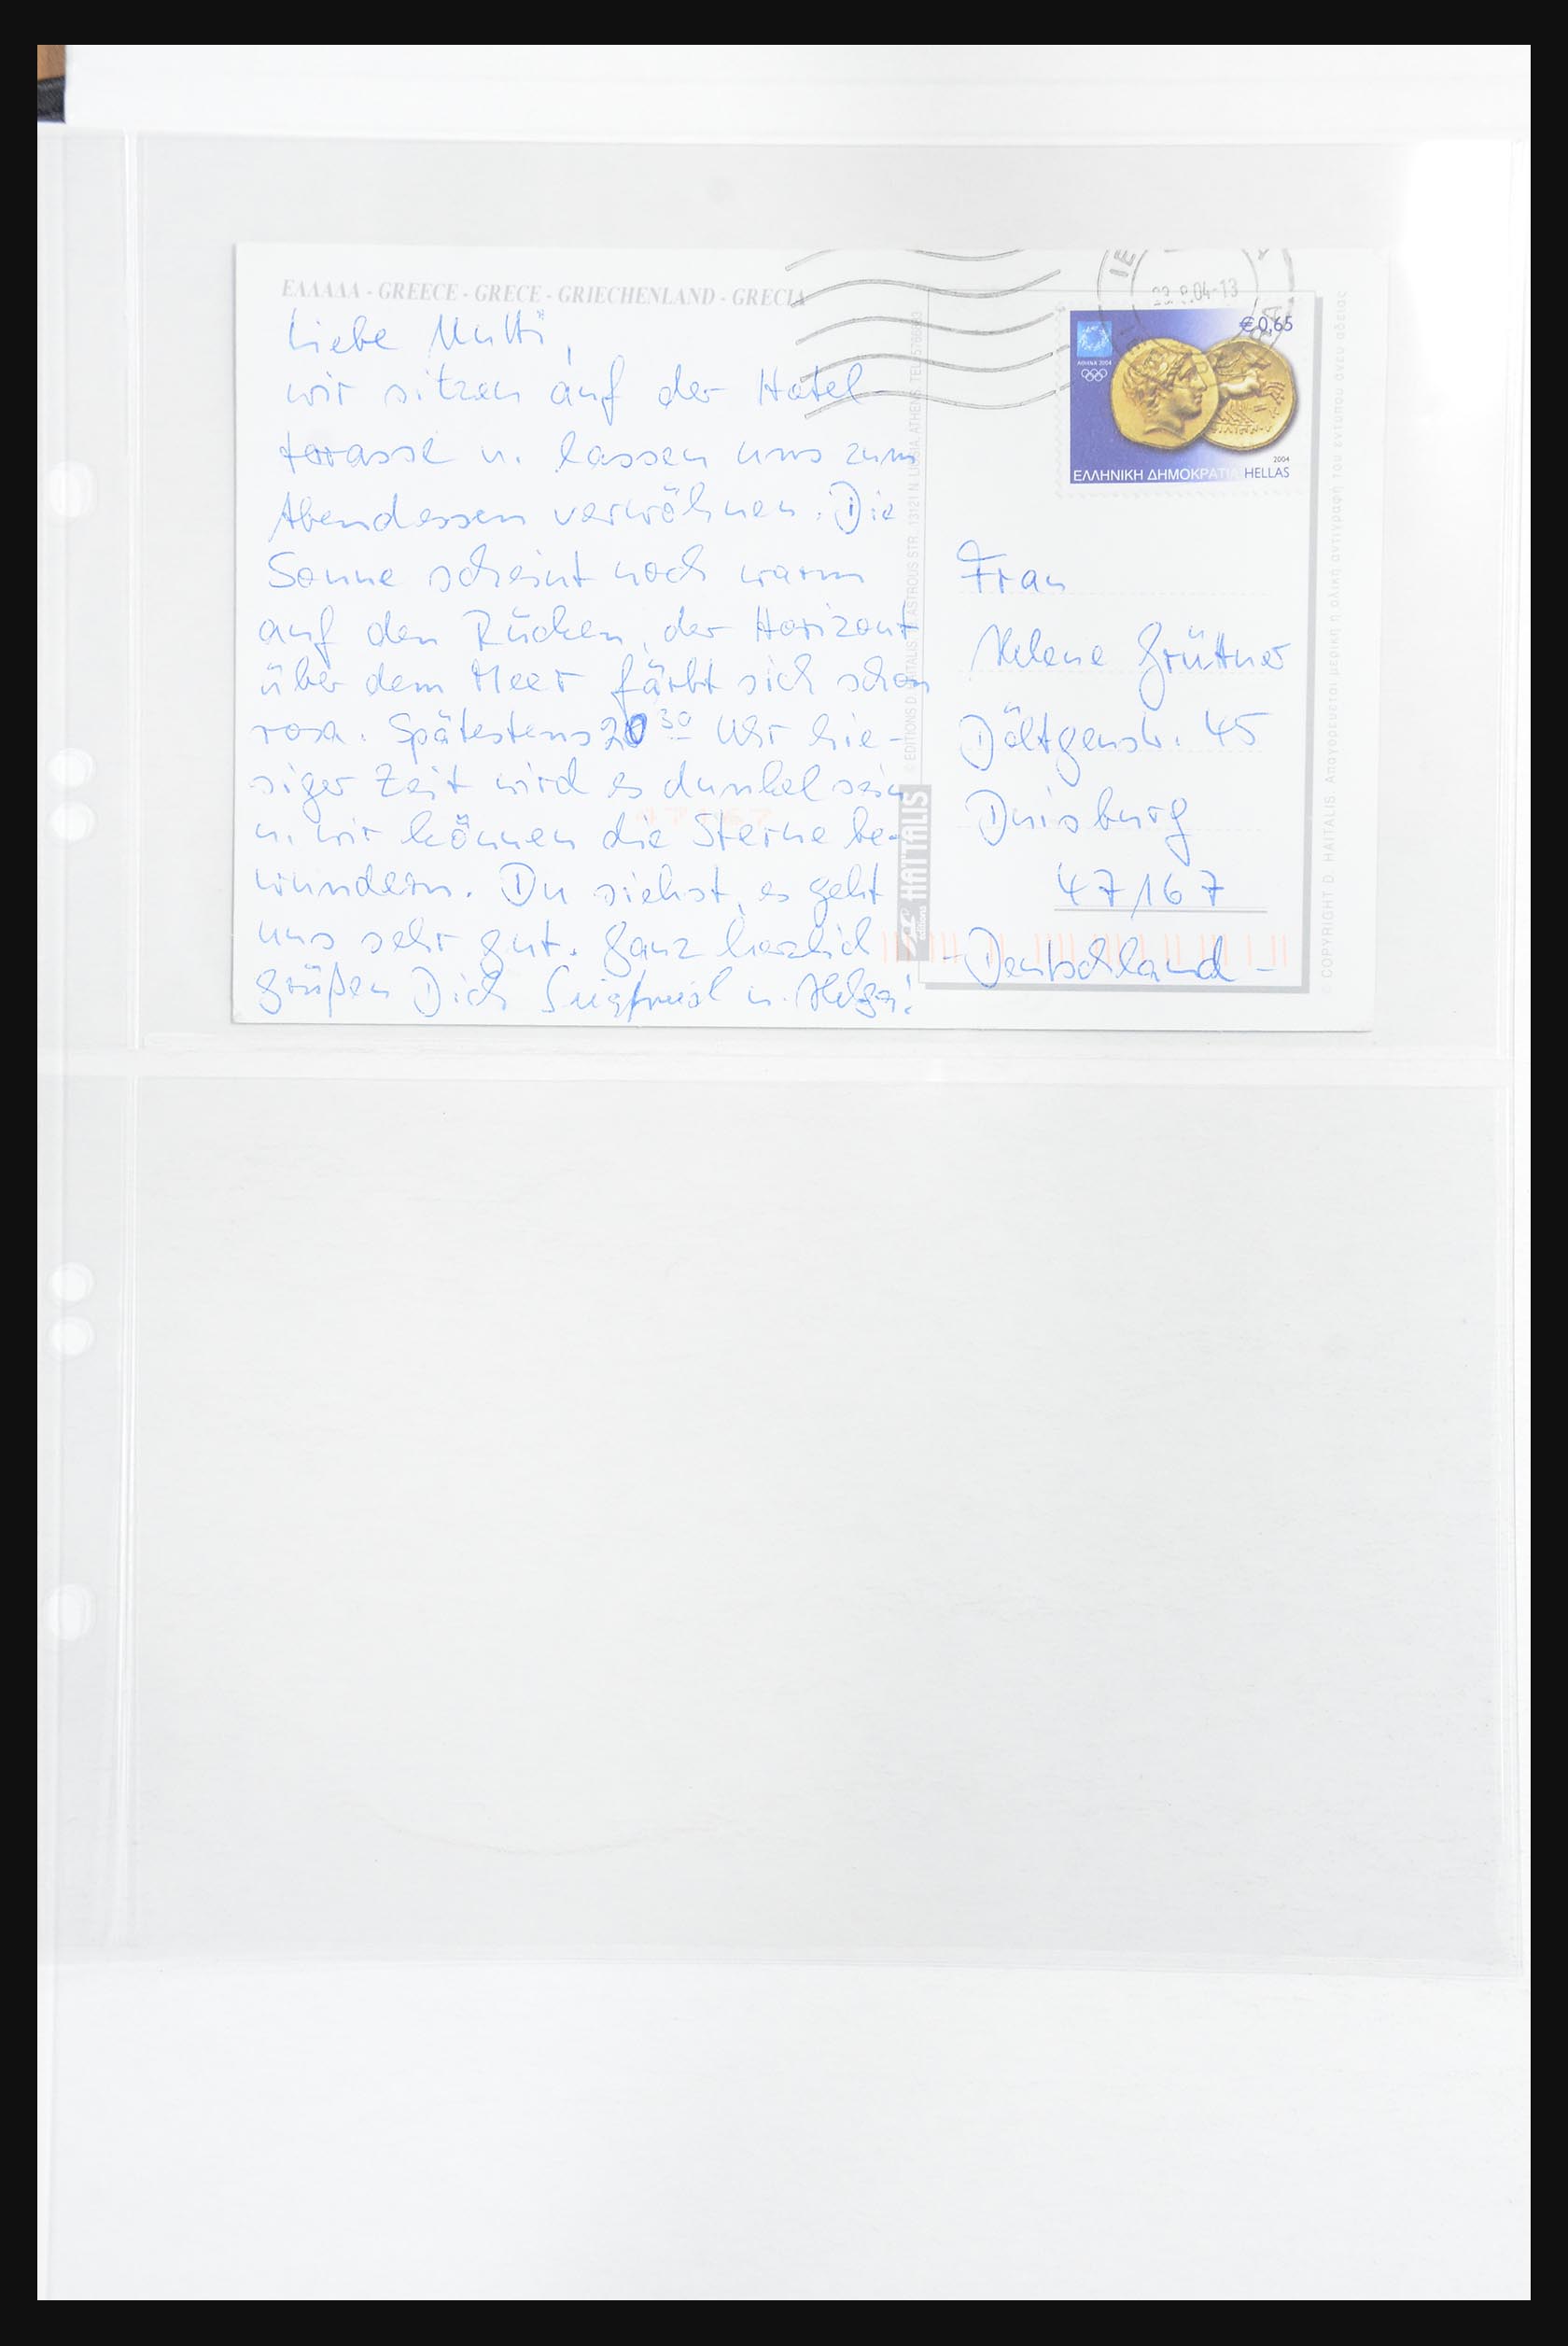 ΕΛΛΑΔΑ - GREECE - GRECE - GRIECHENLAND - GRECIA
Liebe Mutti,
wir sitzen auf der Hotel-
terasse u. lassen uns zum
Abendessen verwöhnen. Die
Sonne scheint noch warm
auf den Rücken, der Horizont
über dem Meer färbt sich schon
rosa. Spätestens 20 30 Uhr hie-
siger Zeit wird es dunkel sein
u. wir können die Sterne be-
wundern. Du siehst, es geht
uns sehr gut. Ganz herzlich
grüßen Dich Siegfried u. Helga!
HAITALIS
editions
04-13
€0,65
ATHINA 2004
2004
ΕΛΛΗΝΙΚΗ ΔΗΜΟΚΡΑΤΙΑ HELLAS
Frau
Helene Grüttner
Dältgenstr. 45
Duisburg
47167
- Deutschland -
COPYRIGHT D. HAITALIS Απαγορεύεται μερική ή ολική αντιγραφή του εντύπου άνευ αδείας